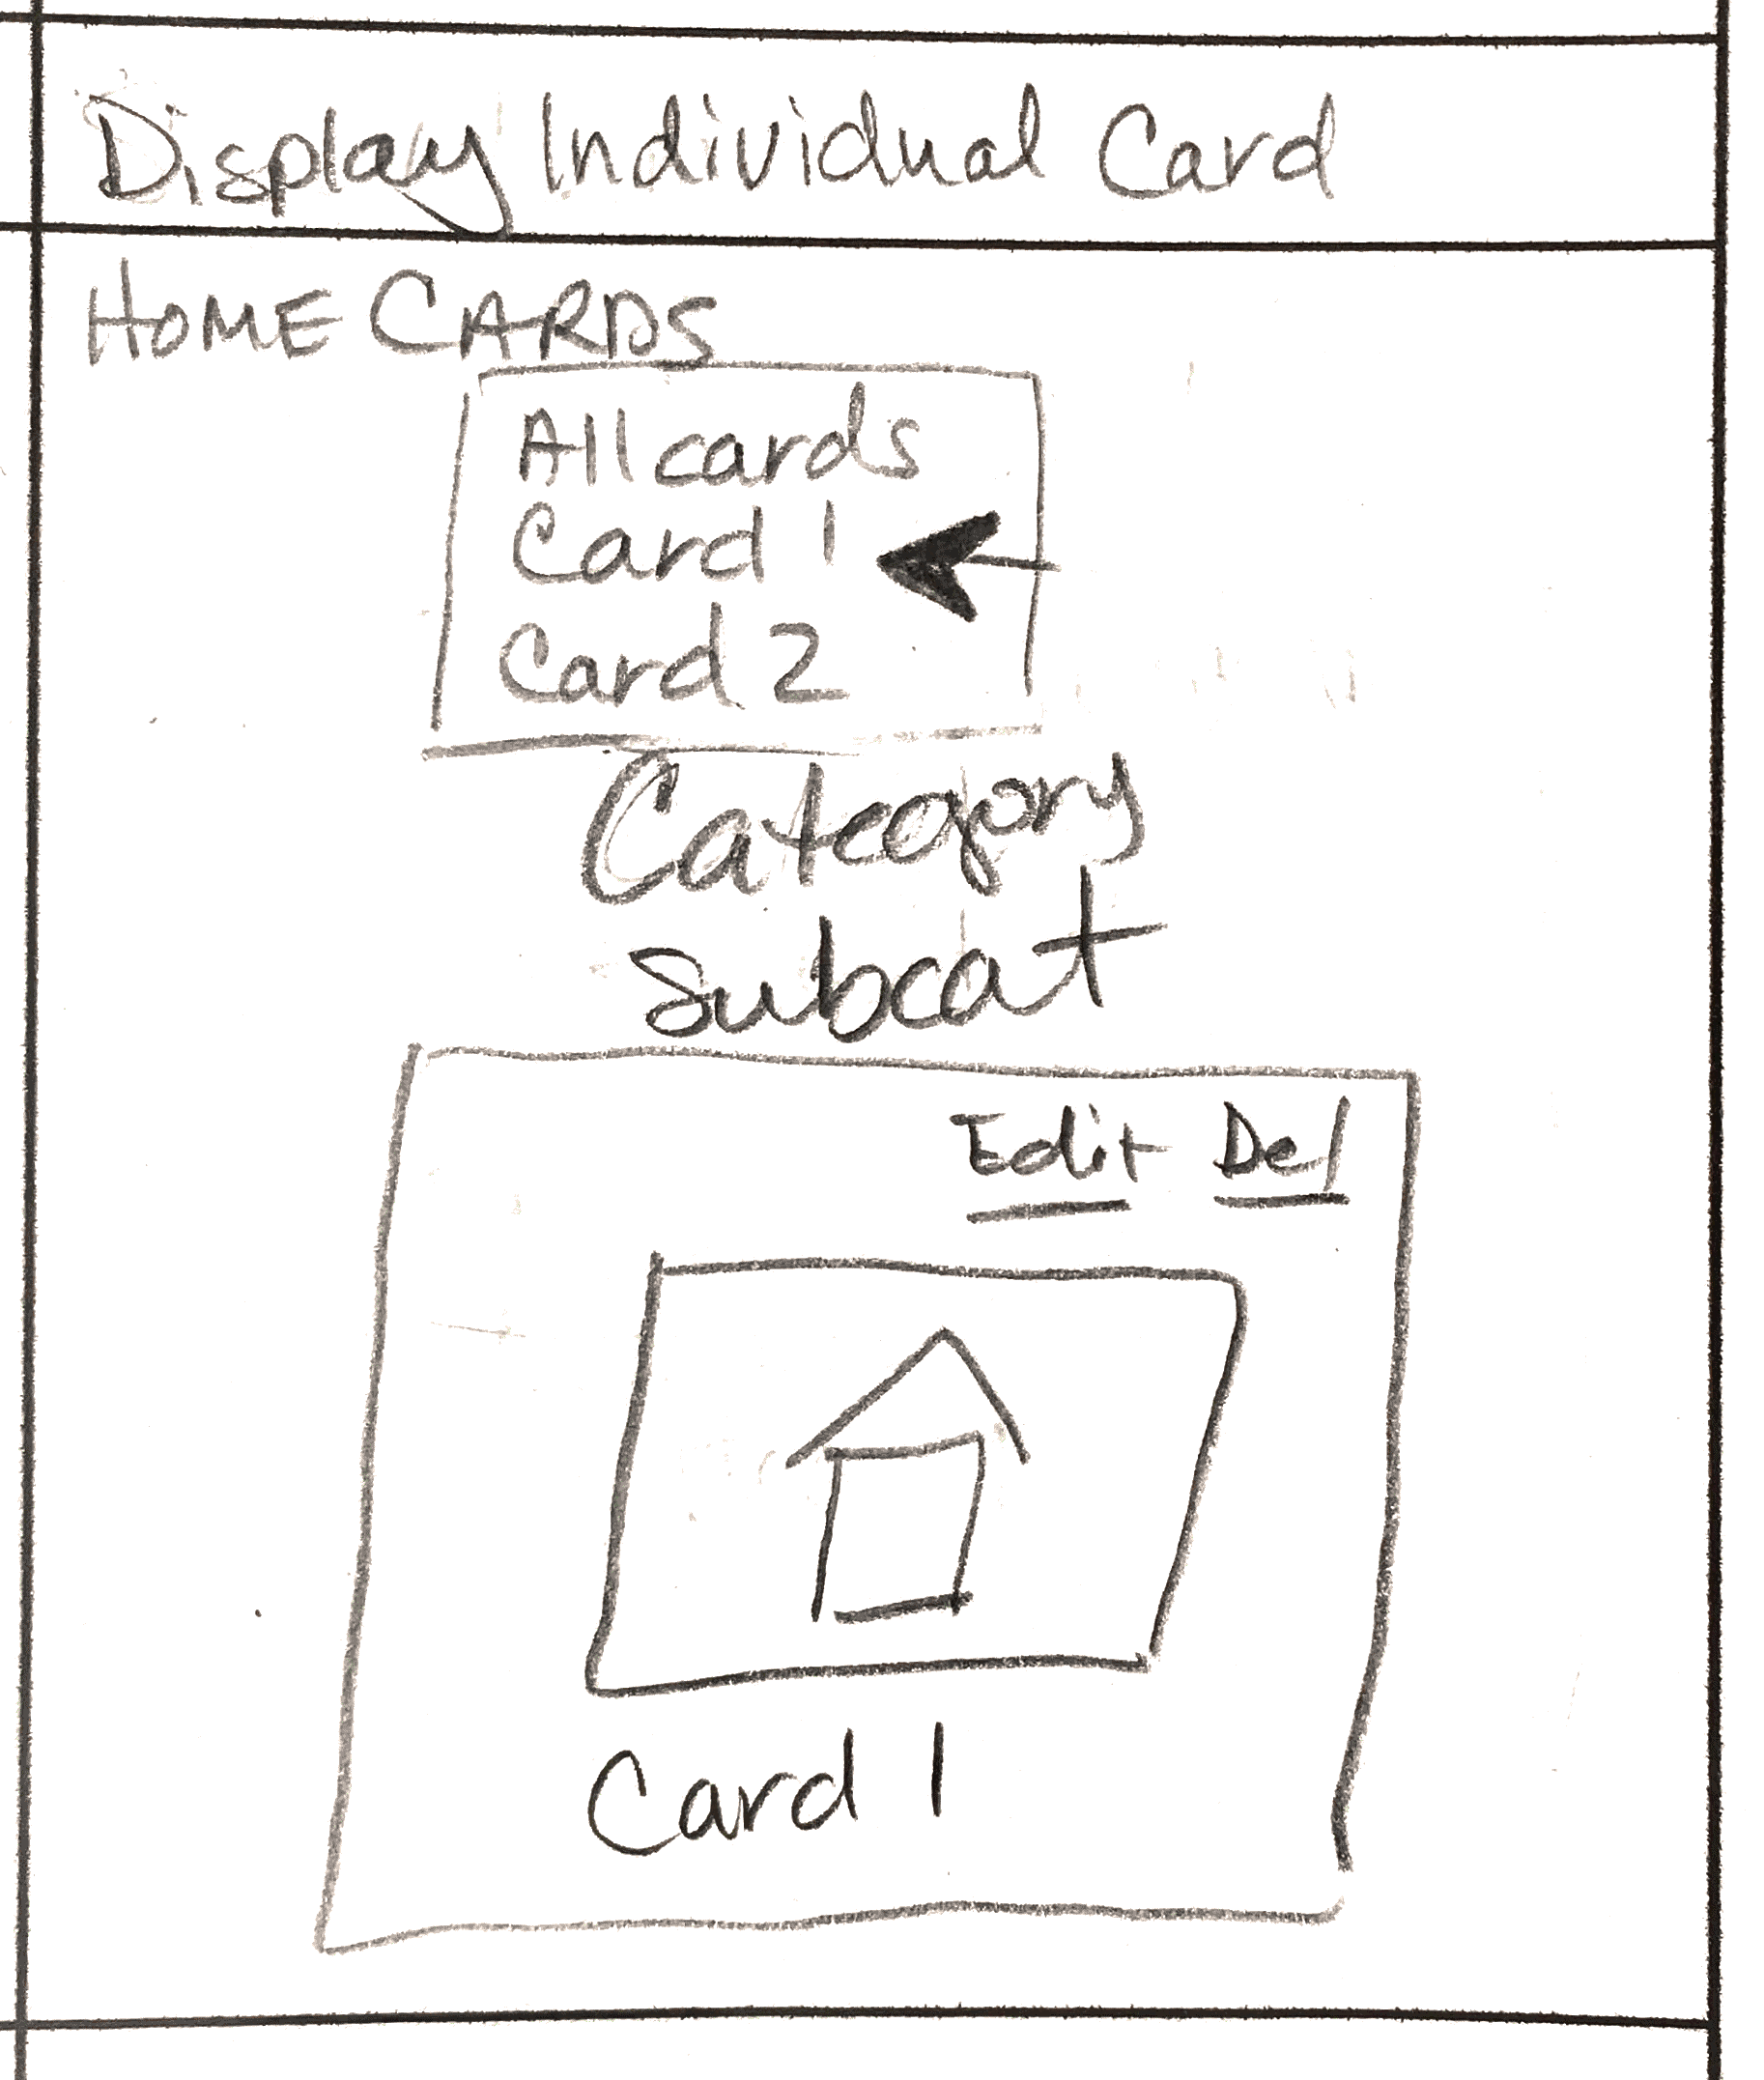 Display Individual Card
HOME CARDS
All cards
Card 1
Card 2
Category
Subcat
Edit Del
Card 1